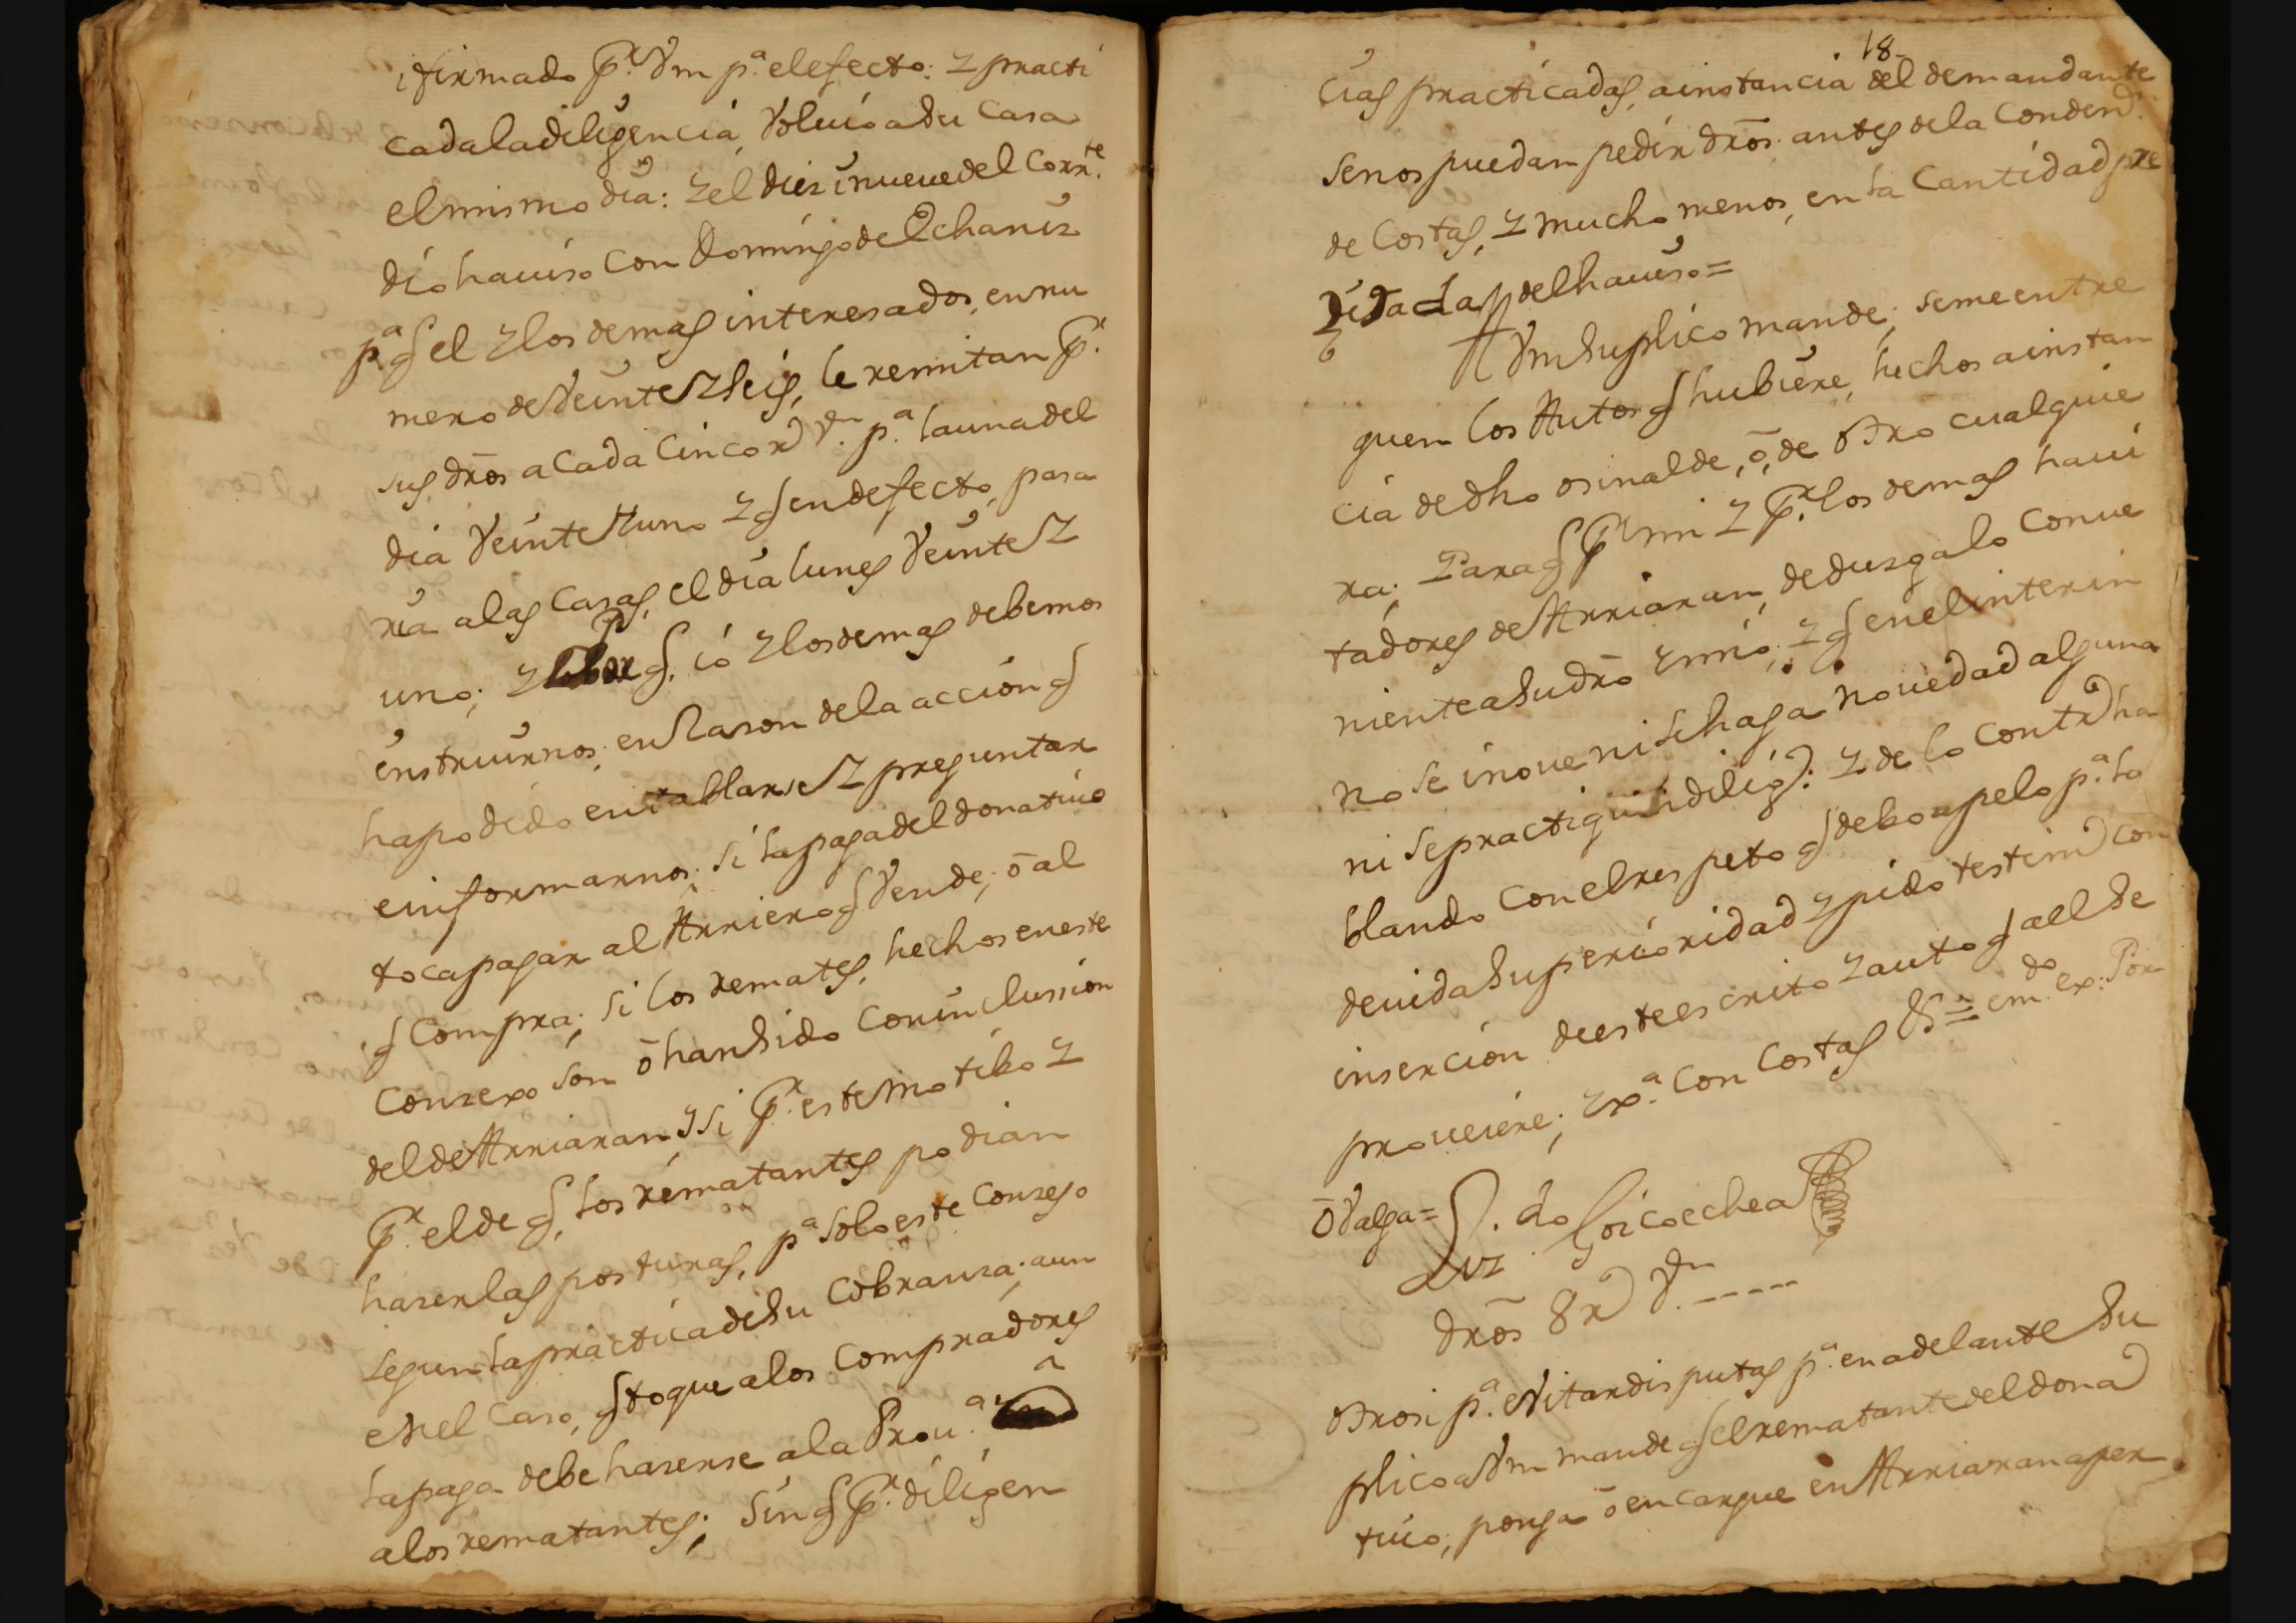 i firmado pr. Vm pa. el efecto: y practi
cada la diligencia, Volvio a su Casa
el mismo dia: y el dies i nueve del Corrte.
dio haviso Con Domingo de Echanis
pa. q el y los demas interesados, en nu
mero de Veinte y seis, le remitan pr.
sus dros a Cada Cinco rs Vn. pa. la una del
dia Veinte y uno y q en defecto, pasa
ria a las Casas, el dia lunes Veinte y
uno; y q. io y los demas debemos
instruirnos; en Rason de la acción q
ha podido entablarse y preguntar
e informarnos; si la paga del donativo
toca pagar al Arriero q Vende; ō al
q Compra; si los remates, hechos en este
Consexo són ō han sido Con inclussion
del de Arriaran y si pr. este Motibo y
pr. el de q, los rematantes podian
haser las posturas, pa. solo este Consejo
segun la práctica de su Cobransa; aun
en el Caso, q toque a los Compradores
la paga debe haserse a la Prova.
a los rematantes; sin q pr. diligen
18
cias practicadas, a instancia del demandante
se nos puedan pedir dros. antes de la Conden
de Costas, y mucho menos, en la Cantidad pre
Citada, del haviso =
A Vm Suplico mande; se me entre
guen los Autos q hubiere, hechos a instan
cia de dho osinalde, ō, de otro cualquie
ra; Para q pr. mi y pr. los demas havi
tadores de Arriaran, dedusga lo Conve
niente a Su dro y mio; y q en el interin
no se inove ni se haga novedad alguna
ni se practiquen dilig: y de lo Contro ha
blando con el respeto q debo apelo pa. la
devida Superioridad y pido testimo con
inserción de este escrito y auto q a el se
proveiére; Xa. Con Costas &. = emdo. ex: Por
ō Valga = L.do Goicoechea
Luz
dros 8 rs Vn. -----
Otrosi pa. eVitar disputas pa. en adelante Su
plico a Vm mande q el rematante del dona
tivo; ponga ō encargue en Arriaran a per